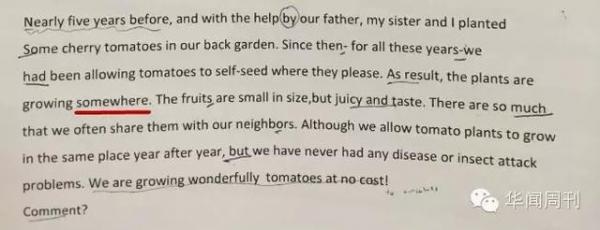 Nearly five years before, and with the help by our father, my sister and I planted
Some cherry tomatoes in our back garden. Since then- for all these years-we
had been allowing tomatoes to self-seed where they please. As result, the plants are
growing somewhere. The fruits are small in size,but juicy and taste. There are so much
that we often share them with our neighbors. Although we allow tomato plants to grow
in the same place year after year, but we have never had any disease or insect attack
problems. We are growing wonderfully tomatoes at no cost!
Comment?
华闻周刊